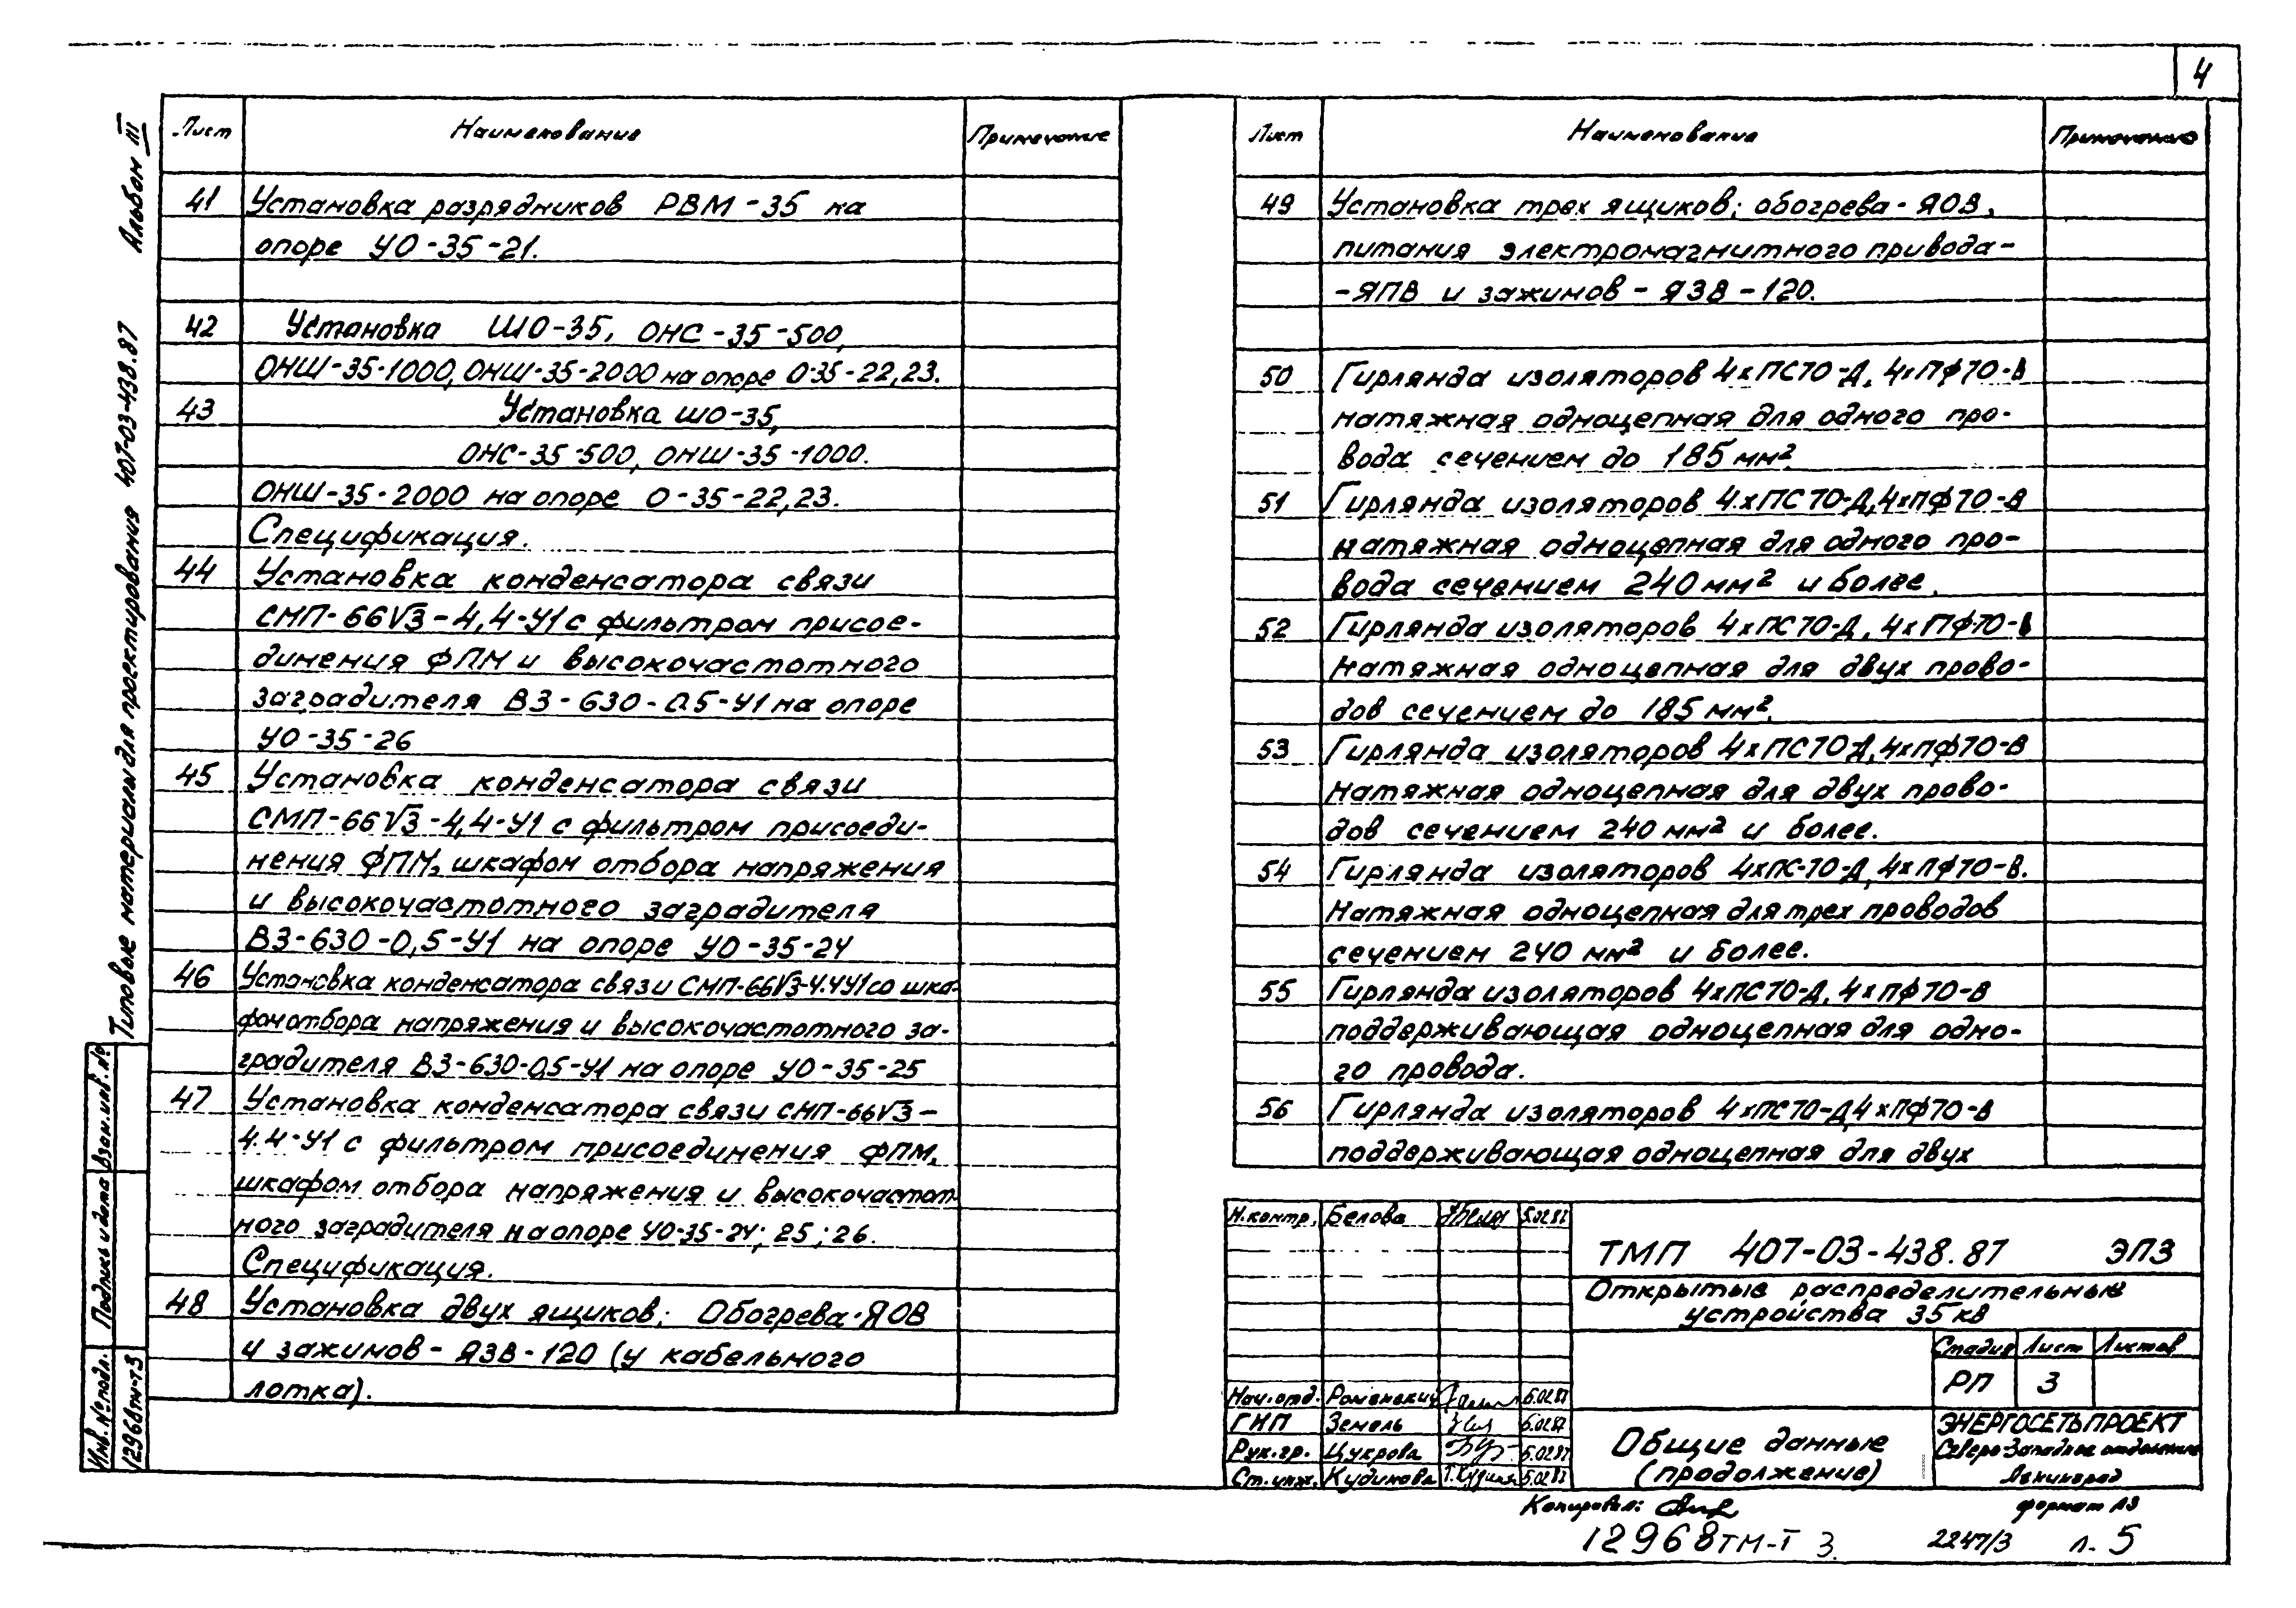 4
Альбом III
Типовые материалы для проектирования 407-03-438.87
Лист Наименование Примечание
41 Установка разрядников РВМ-35 на
опоре УО-35-21.
42 Установка ШО-35, ОНС-35-500,
ОНШ-35-1000, ОНШ-35-2000 на опоре О-35-22,23.
43 Установка ШО-35,
ОНС-35-500, ОНШ-35-1000.
ОНШ-35-2000 на опоре О-35-22,23.
Спецификация.
44 Установка конденсатора связи
СМП-66√3-4,4-У1 с фильтром присое-
динения ФПМ и высокочастотного
заградителя ВЗ-630-0.5-У1 на опоре
УО-35-26
45 Установка конденсатора связи
СМП-66√3-4,4-У1 с фильтром присоеди-
нения ФПМ, шкафом отбора напряжения
и высокочастотного заградителя
ВЗ-630-0,5-У1 на опоре УО-35-24
46 Установка конденсатора связи СМП-66√3-4.4У1 со шка-
фом отбора напряжения и высокочастотного за-
градителя ВЗ-630-0,5-У1 на опоре УО-35-25
47 Установка конденсатора связи СМП-66√3-
4.4-У1 с фильтром присоединения ФПМ,
шкафом отбора напряжения и высокочастот-
ного заградителя на опоре УО-35-24; 25; 26.
Спецификация.
48 Установка двух ящиков; Обогрева-ЯОВ
и зажимов-ЯЗВ-120 (у кабельного
лотка).
Лист Наименование Примечание
49 Установка трех ящиков; обогрева-ЯОВ,
питания электромагнитного привода-
-ЯПВ и зажимов-ЯЗВ-120.
50 Гирлянда изоляторов 4хПС70-Д, 4хПФ70-В
натяжная одноцепная для одного про-
вода сечением до 185 мм².
51 Гирлянда изоляторов 4хПС70-Д, 4хПФ70-В
натяжная одноцепная для одного про-
вода сечением 240 мм² и более.
52 Гирлянда изоляторов 4хПС70-Д, 4хПФ70-В
натяжная одноцепная для двух прово-
дов сечением до 185 мм².
53 Гирлянда изоляторов 4хПС70-Д, 4хПФ70-В
натяжная одноцепная для двух прово-
дов сечением 240 мм² и более.
54 Гирлянда изоляторов 4хПС-70-Д, 4хПФ70-В.
натяжная одноцепная для трех проводов
сечением 240 мм² и более.
55 Гирлянда изоляторов 4хПС70-Д, 4хПФ70-В
поддерживающая одноцепная для одно-
го провода.
56 Гирлянда изоляторов 4хПС70-Д, 4хПФ70-В
поддерживающая одноцепная для двух
Н.контр. Белова 5.02.87
Нач.отд. Роменский 5.02.87
ГИП Земель 5.02.87
Рук.гр. Цукрова 5.02.87
Ст.инж. Кудинова 5.02.87
ТМП 407-03-438.87 ЭПЗ
Открытые распределительные
устройства 35 кв
Стадия Лист Листов
РП 3
Общие данные
(продолжение)
ЭНЕРГОСЕТЬПРОЕКТ
Северо-Западное отделение
Ленинград
Копировал:
формат А3
12968тм-т 3. 2247/3 л. 5
Взам.инв.№
Подпись и дата
Инв.№подл.
12968тм-т3